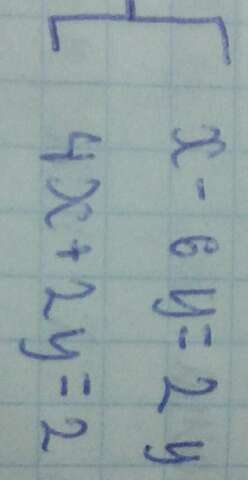 x - 6y = 2y
4x + 2y = 2